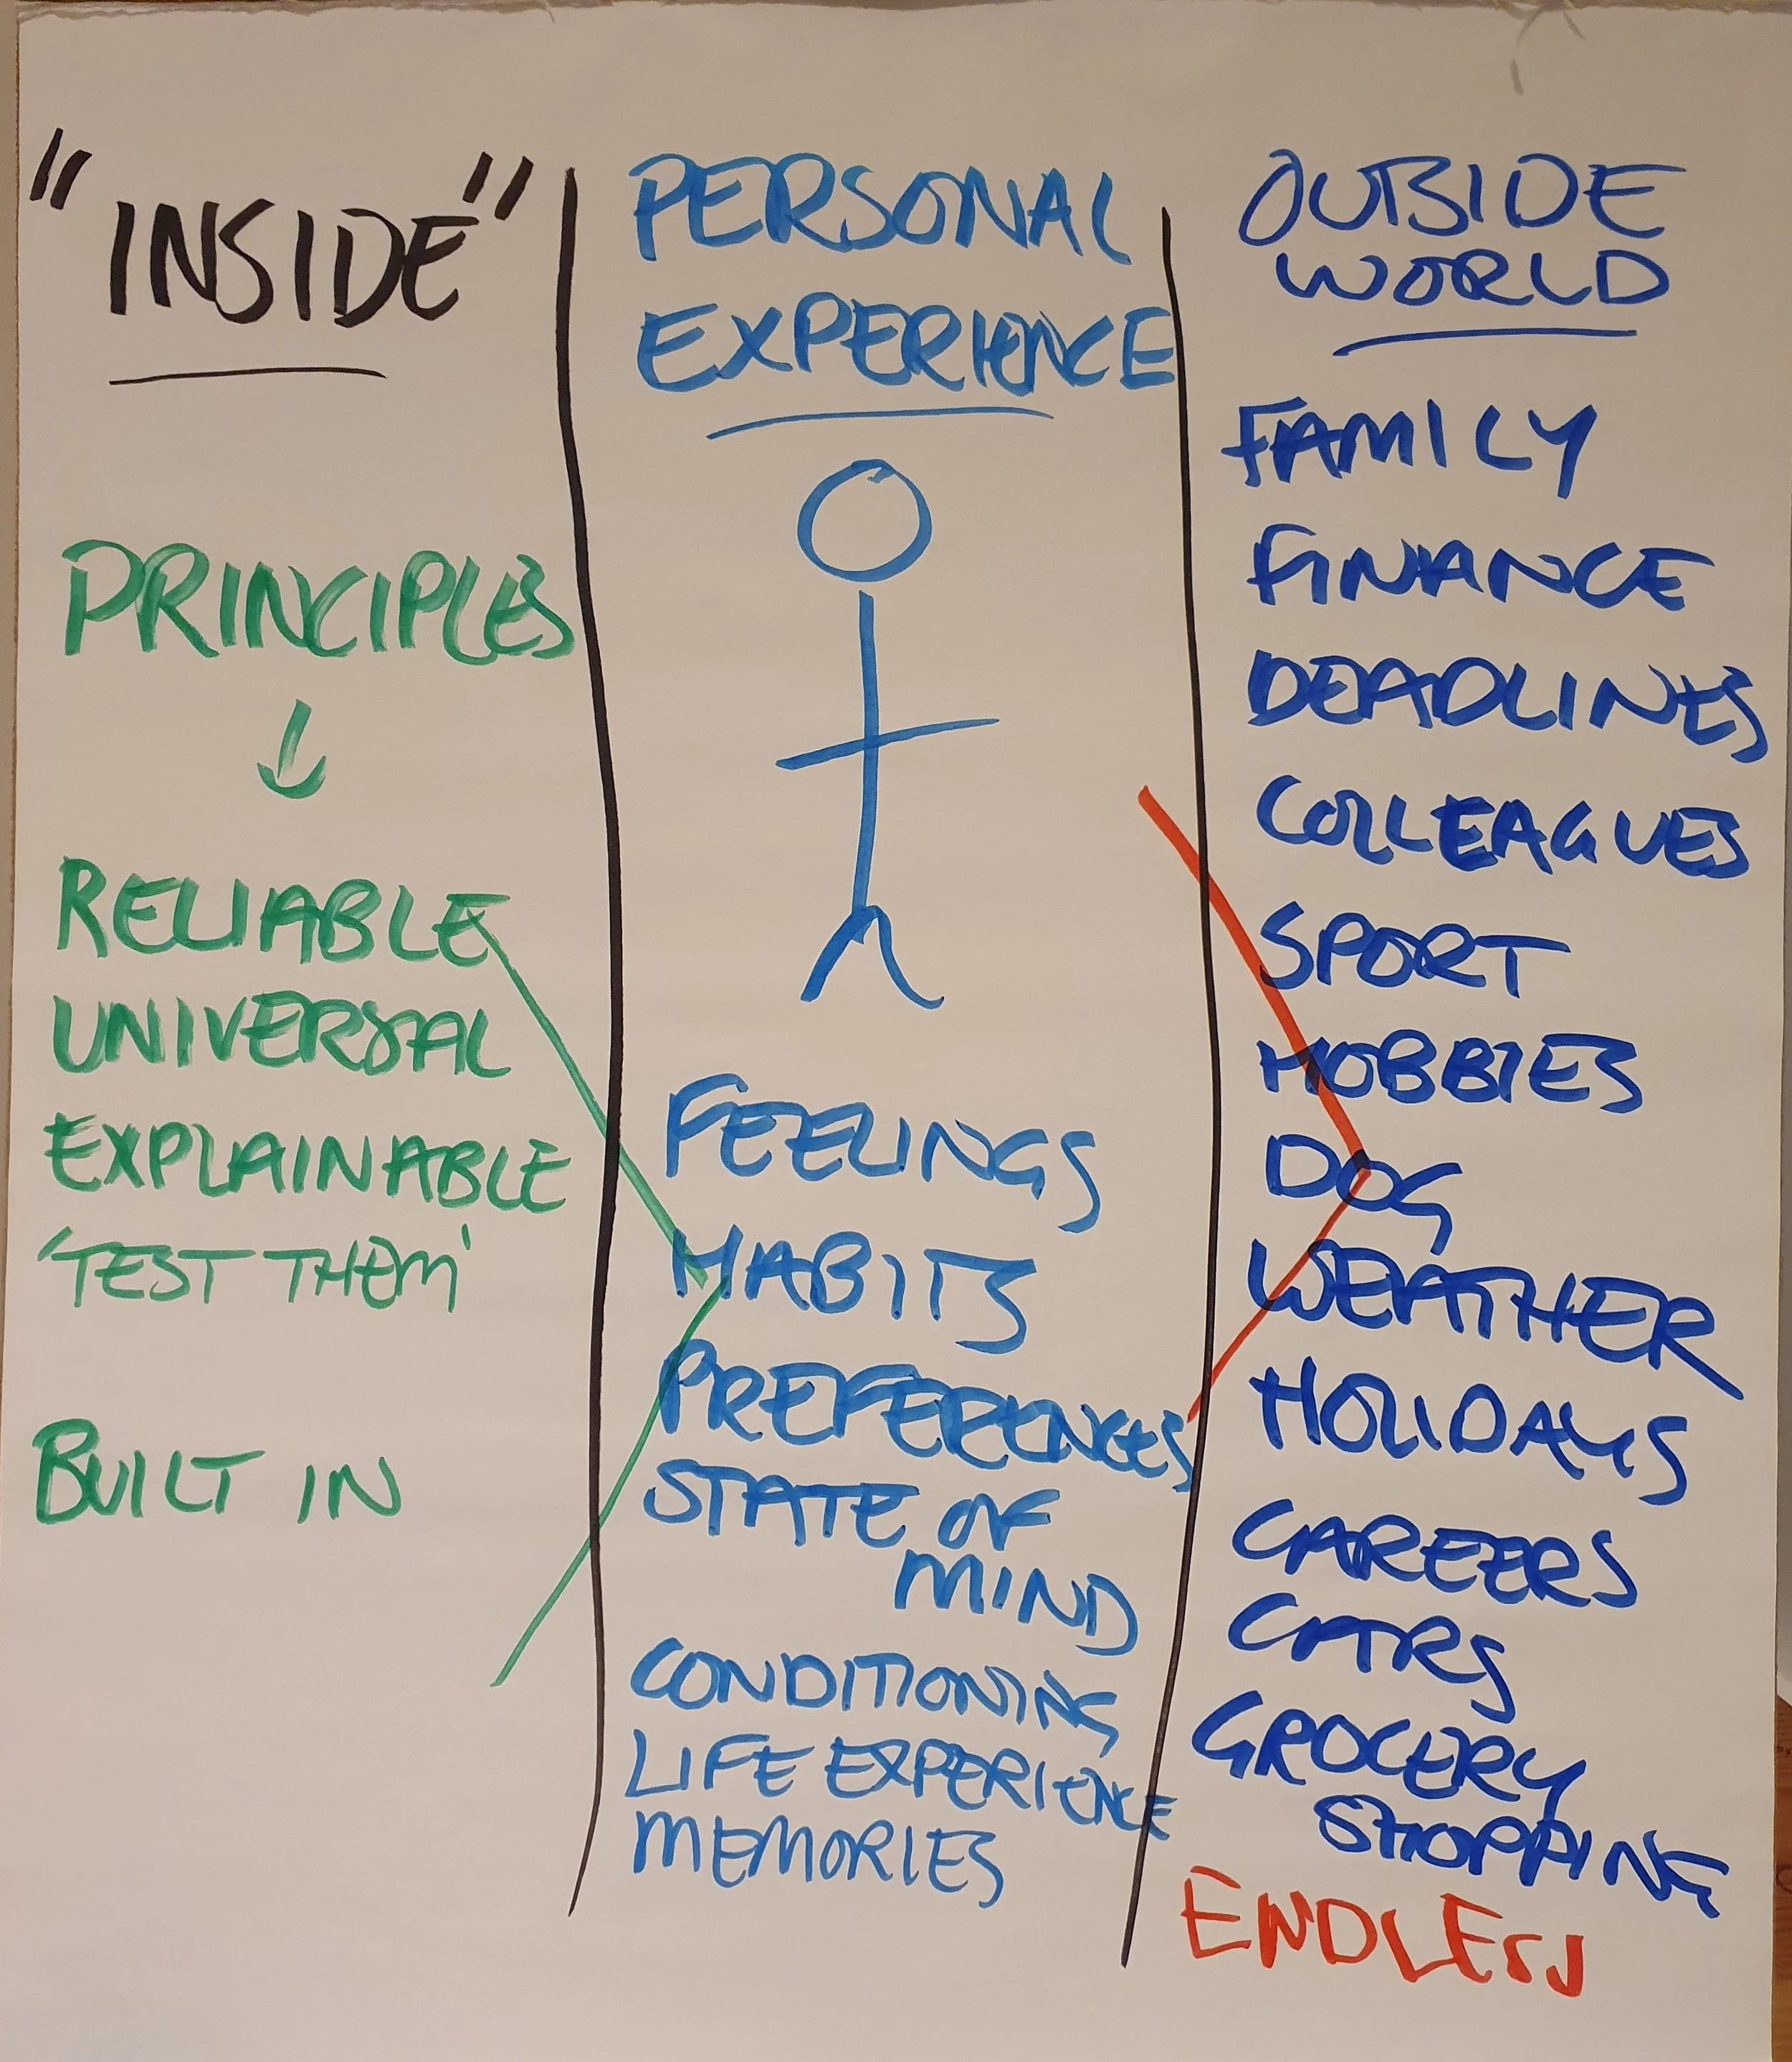 "INSIDE"
PRINCIPLES
RELIABLE
UNIVERSAL
EXPLAINABLE
'TEST THEM'
BUILT IN
PERSONAL
EXPERIENCE
FEELINGS
HABITS
PREFERENCES
STATE OF
MIND
CONDITIONING
LIFE EXPERIENCE
MEMORIES
OUTSIDE
WORLD
FAMILY
FINANCE
DEADLINES
COLLEAGUES
SPORT
HOBBIES
DOG
WEATHER
HOLIDAYS
CAREERS
CARS
GROCERY
SHOPPING
ENDLESS